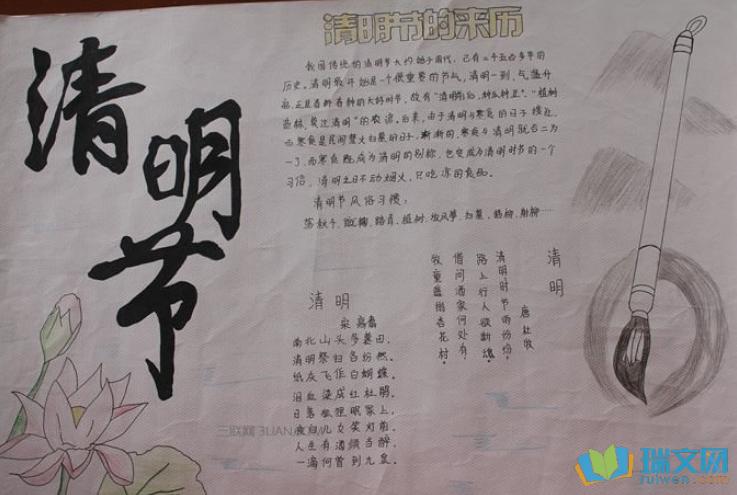 清明节
清明节的来历
我国传统的清明节大约始于周代,已有二千五百多年的
历史。清明最开始是一个很重要的节气,清明一到,气温升
高,正是春耕春种的大好时节,故有“清明前后,种瓜种豆”。“植树
造林,莫过清明”的农谚。后来,由于清明与寒食的日子接近,
而寒食是民间禁火扫墓的日子,渐渐的,寒食与清明就合二为
一了,而寒食既成为清明的别称,也变成为清明时节的一个
习俗,清明之日不动烟火,只吃凉的食品。
清明节风俗习惯:
荡秋千、蹴鞠、踏青、植树、放风筝、扫墓、插柳、射柳……
清明
唐 杜牧
清明时节雨纷纷,
路上行人欲断魂。
借问酒家何处有,
牧童遥指杏花村。
清明
宋 高翥
南北山头多墓田,
清明祭扫各纷然。
纸灰飞作白蝴蝶,
泪血染成红杜鹃。
日暮狐狸眠冢上,
夜归儿女笑灯前。
人生有酒须当醉,
一滴何曾到九泉。
三联网 3LIAN
瑞文网
ruiwen.com